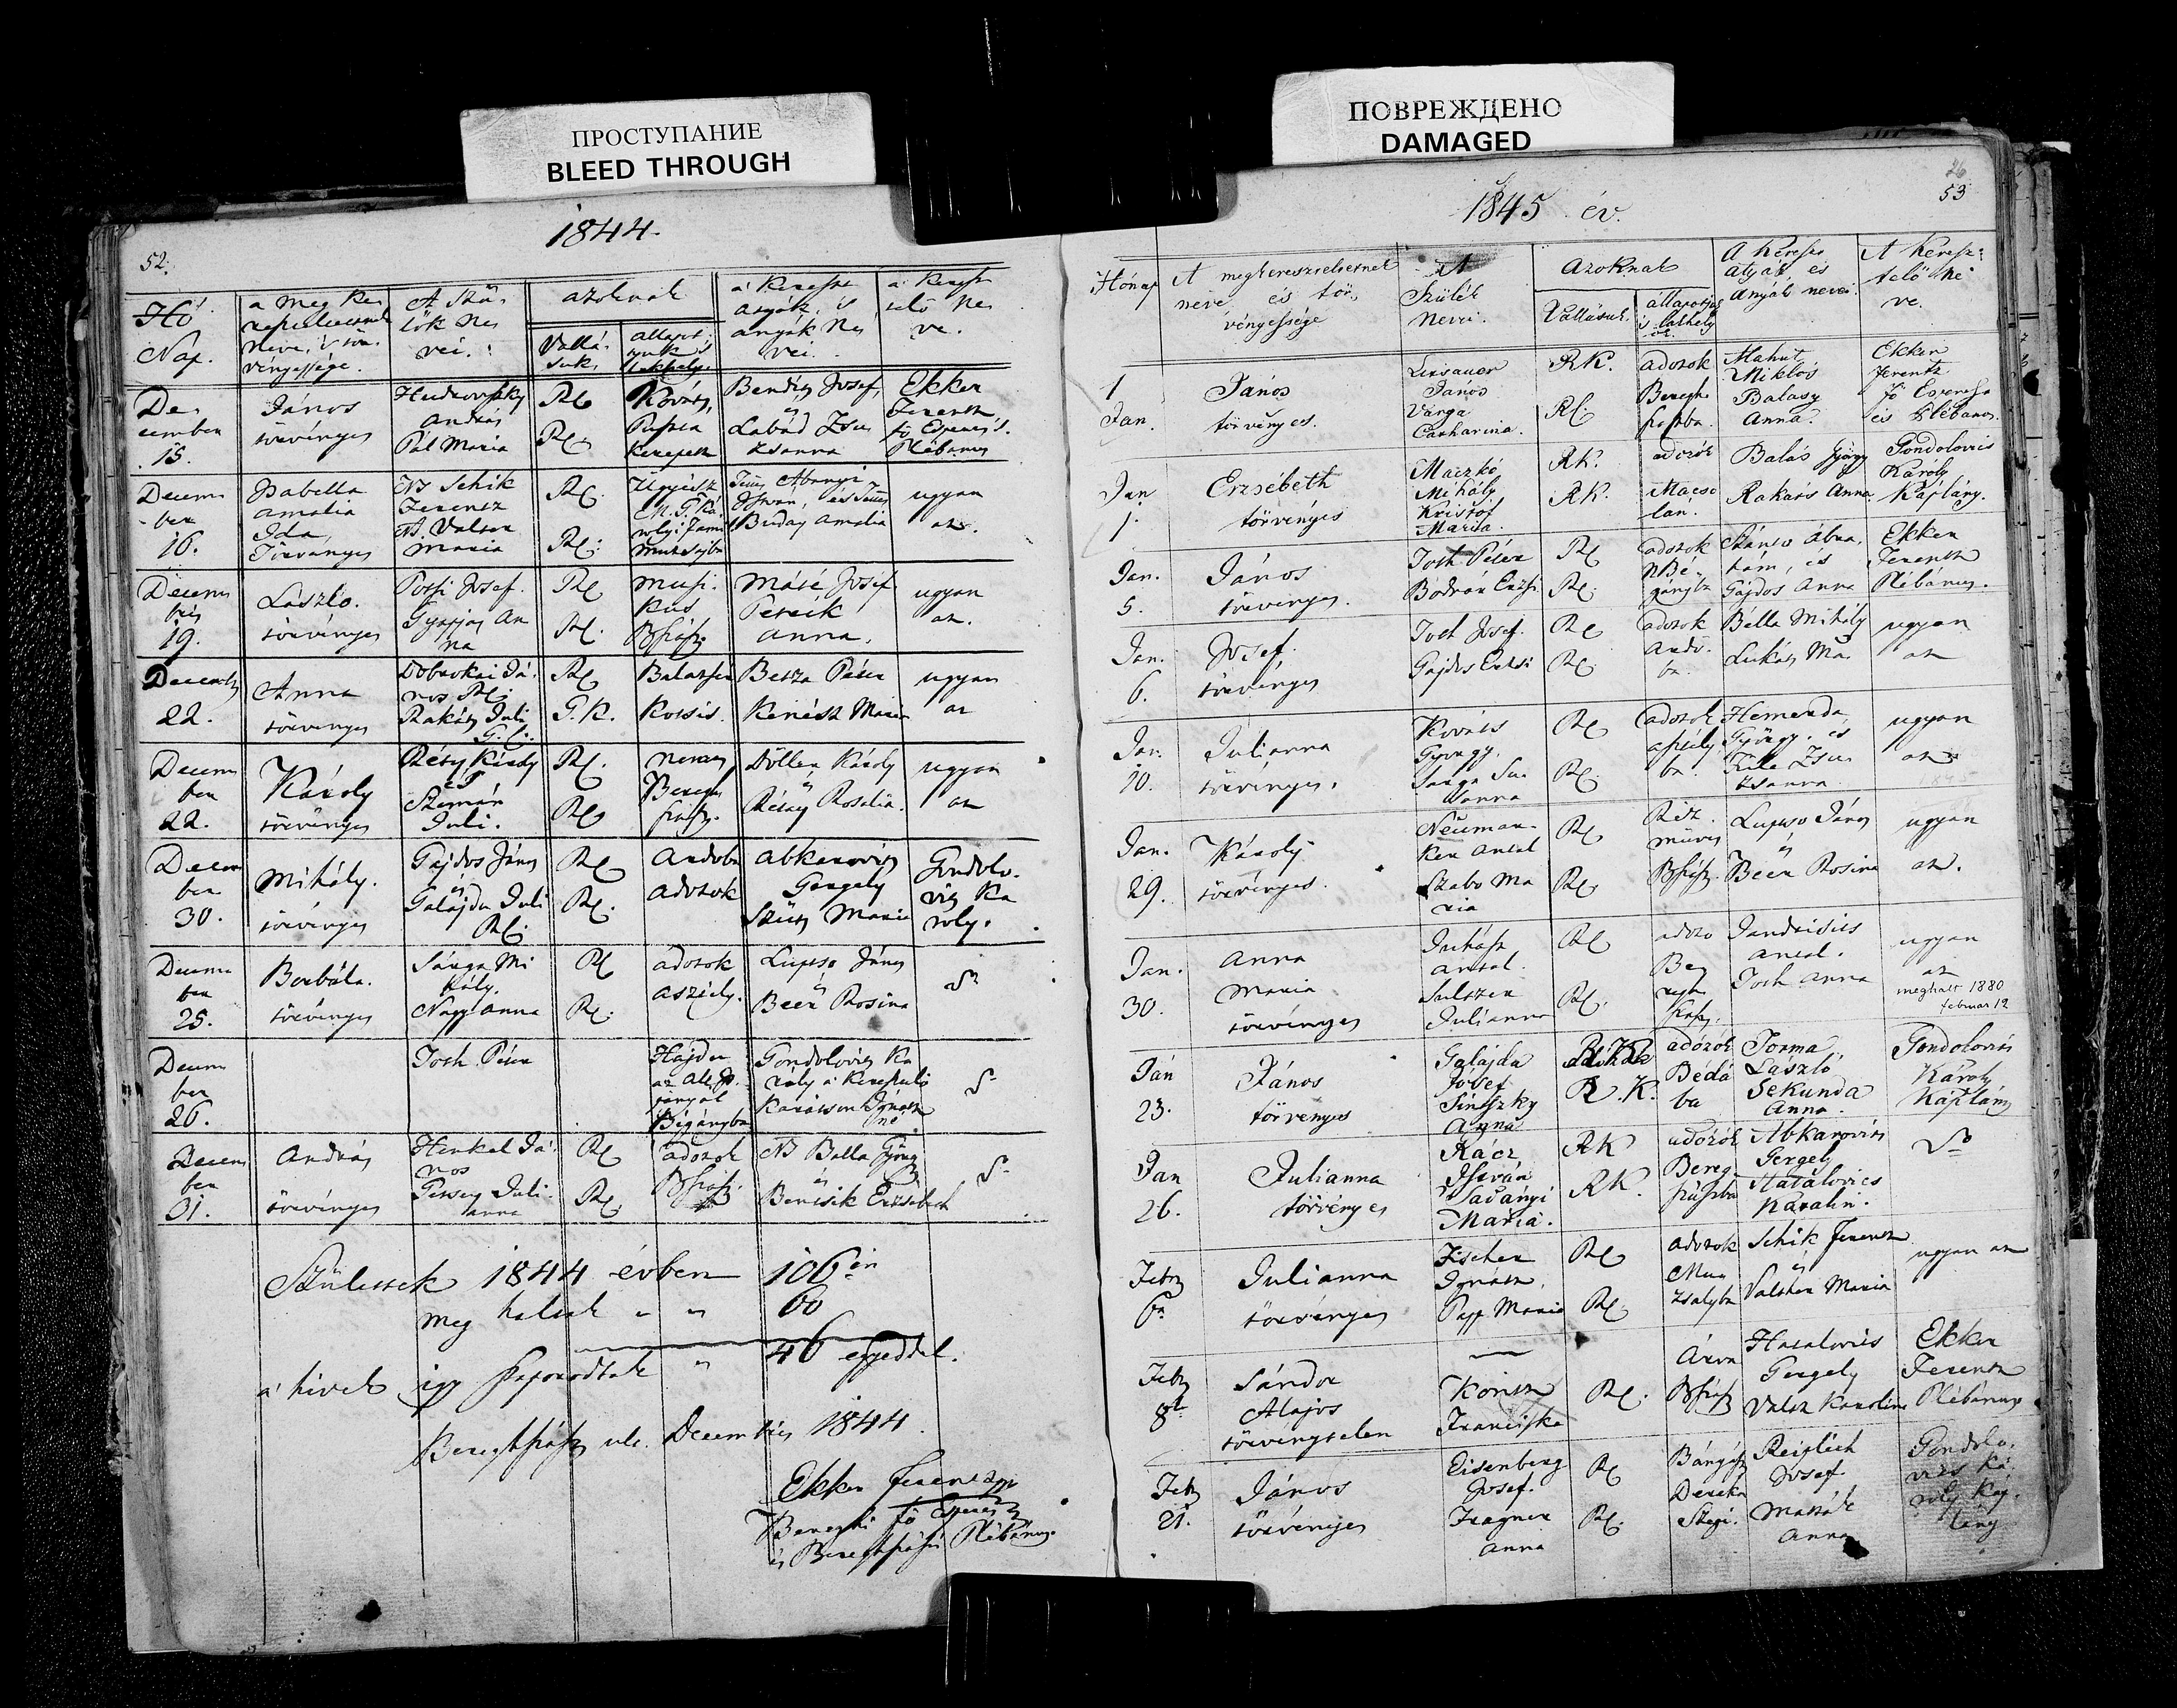 ПРОСТУПАНИЕ
BLEED THROUGH
ПОВРЕЖДЕНО
DAMAGED
52.
1844.
Hó
Nap.
a meg ke
neve, 's tör
vényessége.
A Szü
lők ne
vei.
azoknak
Vallá
suk.
állapot
juk 's
lakhely.
a kereszt
atyák, 's
anyák ne
vei.
a keresz
telő ne
ve.
De
cember
15.
János
törvényes
András
Pál Maria
RC
RC.
Kováts,
Puszta
Kerepecz
Bendász Josef,
és
Labád Zsu
zsanna
Ekker
Ferentz,
fő Esperes 's
Plébánus
Decem
ber
16.
Isabella
Amalia
Ida
Törvényes
Ns Schik
Ferencz
N. Valter
Maria
RC.
RC.
Ügyész
Abonyi
István, és
Buday Amalia
ugyan
az.
Decem
bris
19.
László.
törvényes
Possi Josef.
Gyapjas An
na
RC
RC.
Musi
kus
BSzász.
Máté Josef
Petrik
Anna.
ugyan
az.
Decemb
22.
Anna
törvényes
Dobrokai Já
nos RC.
Rakáts Juli
G. C.
RC
G. K.
Balazsér
Kotsis.
Besza Péter
Kenész Maria
ugyan
az
Decem
ber
22.
Károly
törvényes
Rétsy Király
és
Szemán
Juli.
RC.
RC
nemes
Beregh
szász.
Döller Károly
és
Rétsey Rosalia.
ugyan
az
Decem
ber
30.
Mihály.
törvényes
Gajdos János
Galajda Juli
RC.
RC
RC.
Andoba
adozok
Abkarovics
Gergely
Szüts Maria
Gondolo
vits Ka
roly.
Decem
ber
25.
Borbála.
törvényes
Sárga Mi
hály.
Nagy Anna
RC
RC.
adozok
Asziely.
Lupsso János
és
Beér Rosina
Decem
ber
26.
Toth Péter
Hajdu
Bigányba
Gondolovits Ka
roly a' keresztelő
Karátson Ignátz
né
Decem
ber
31.
András
törvényes
Henkel Já
nos
Juli
anna
RC
RC.
adozok
BSzász.
Ns Balla György
és
Bentsik Ersébeth
Születtek 1844 évben 106án
meg holtak " " 60
a' hívek így szaporodtak " 46 egyeddel.
Beregszász ult. Decembris 1844.
Ekker Ferencz
Bereghi fő Esperes
és Beregszászi Plébánus.
26
53
1845 év.
Hónap
A megkereszteltetnek
neve és tör
vényessége
A
Szülék
nevei.
Azoknak
Vallásuk.
állapotjok
's lakhely
ök.
A keresz
atyák és
Anyák nevei.
A keresz
telő ne
ve.
1
Jan.
János
törvényes.
Lerisauer
János
Varga
Catharina.
RK.
RC.
adozok
Beregh
szászba.
Mahut
Miklós
Balasy
Anna.
Ekker
Ferentz
Fő Esperes
és Plébános.
Jan
1.
Erzsébeth
törvényes
Maczkó
Mihály
Kristóf
Mária.
RK.
RK.
adozók
Macso
lán.
Balás György
Rakats Anna
Gondolovics
Károly
Káplány.
Jan.
5.
János
törvényes.
Toth Péter
Bodnár Erzsi
RC
RC.
adozok
NBé
gányba
Sztántso Ábra
hám, és
Gajdos Anna
Ekker
Ferentz
Plébánus.
Jan.
6.
Josef.
törvényes
Toth Josef.
Gajdos Erzsi
RC
RC.
adozok
Ando
ba.
Bella Mihály
Lukáts Ma
ugyan
az
Jan.
10.
Julianna
törvényes.
Kováts
György.
Sarga Su
sanna
RC
RC.
adozok
Aszély
ba.
Hemenda
György. és
Zsu
zsanna
ugyan
az
1845
Jan.
29.
Károly
törvényes.
Neuman
ker Antal
Szabo Ma
ria
RC
RC.
Réz
műves
BSzász.
Lupsso János
és
Beér Rosina
ugyan
az.
Jan.
30.
Anna
Maria
törvényes
Juhász
Antal.
Sulszer
Julianna
RC
RC.
adozo
Ber
egh
szász.
Jandrisits
Antal.
Toth Anna
ugyan
az
meghalt 1880
februar 12
Ján
23.
János
törvényes
Galajda
József
Sinszky
Anna
R. K.
R. K.
adózók
Bédá
ba
Torma
László
Sekunda
Anna.
Gondolovits
Károly
Káplány
Jan
26.
Julianna
törvényes
Rácz
István
Vaványi
Mária.
RK
RK.
adózók
Bereg
szászba
Abkarovits
Gergely
Hatalovics
Karolin.
Febr
6a
Julianna
törvényes
Fischer
Ignátz.
Papp Maria
RC
RC.
adozok
Mun
Schik Ferencz
és
Valther Maria
ugyan az
Febr
8
Sándor
Alajos
törvénytelen
Franciska
RC.
Árva
BSzász
Hatalovits
Gergely
Valsz Karolina
Ekker
Ferentz
Plébánus
Febr
21.
János
törvényes
Eisenberg
Josef.
Fragner
Anna
RC
RC.
Bányász
Dereka
Szegi.
Reiplich
Josef.
Massák
Anna
Gondolo
vits Ká
roly Kap
lány